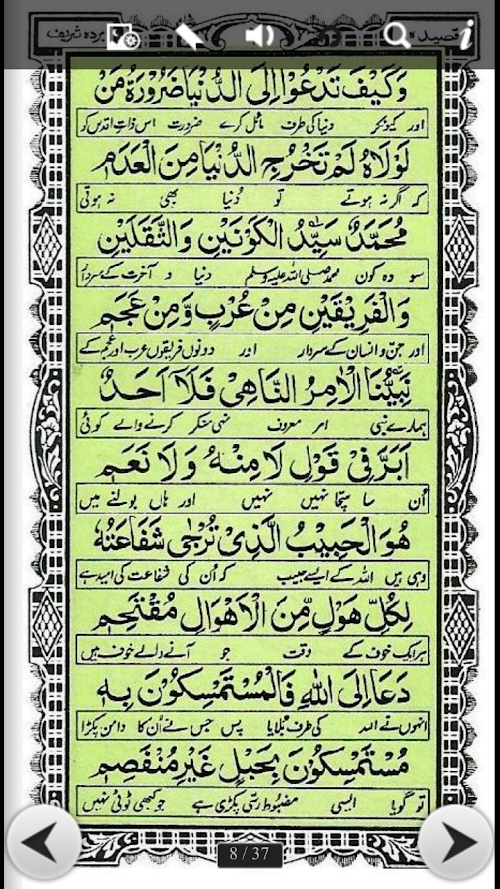 قصیدہ بردہ شریف
وَكَيْفَ تَدْعُوْا اِلَى الدُّنْيَا ضَرُوْرَةُ مَنْ
اور کیونکر دنیا کی طرف مائل کرے ضرورت اس ذات اقدس کو
لَوْلَاهُ لَمْ تَخْرُجِ الدُّنْيَا مِنَ الْعَدَمِ
کہ اگر نہ ہوتے تو دُنیا بھی نہ ہوتی
مُحَمَّدٌ سَيِّدُ الْكَوْنَيْنِ وَالثَّقَلَيْنِ
سو وہ کون محمد صلی اللہ علیہ وسلم دنیا و آخرت کے سردار
وَالْفَرِيْقَيْنِ مِنْ عُرْبٍ وَّمِنْ عَجَمِ
اور جنّ و انسان کے سردار اور دونوں فریقوں عرب اور عجم کے
نَبِيُّنَا الْاٰمِرُ النَّاهِيْ فَلَآ اَحَدٌ
ہمارے نبی امر معروف نہی منکر کرنے والے کوئی
اَبَرَّ فِيْ قَوْلِ لَا مِنْهُ وَلَا نَعَمِ
اُن سا سچا نہیں نہیں اور ہاں بولنے میں
هُوَ الْحَبِيْبُ الَّذِيْ تُرْجٰى شَفَاعَتُهٗ
وہی ہیں اللہ کے ایسے حبیب کہ اُن کی شفاعت کی امید ہے
لِكُلِّ هَوْلٍ مِّنَ الْاَهْوَالِ مُقْتَحِمِ
ہر ایک خوف کے وقت جو آنے والے خوف ہیں
دَعَا اِلَى اللّٰهِ فَالْمُسْتَمْسِكُوْنَ بِهٖ
انہوں نے اللہ کی طرف بُلایا پس جس نے اُن کا دامن پکڑا
مُسْتَمْسِكُوْنَ بِحَبْلٍ غَيْرِ مُنْفَصِمِ
تو گویا ایسی مضبوط رسّی پکڑی ہے جو کبھی ٹوٹی نہیں
8 / 37